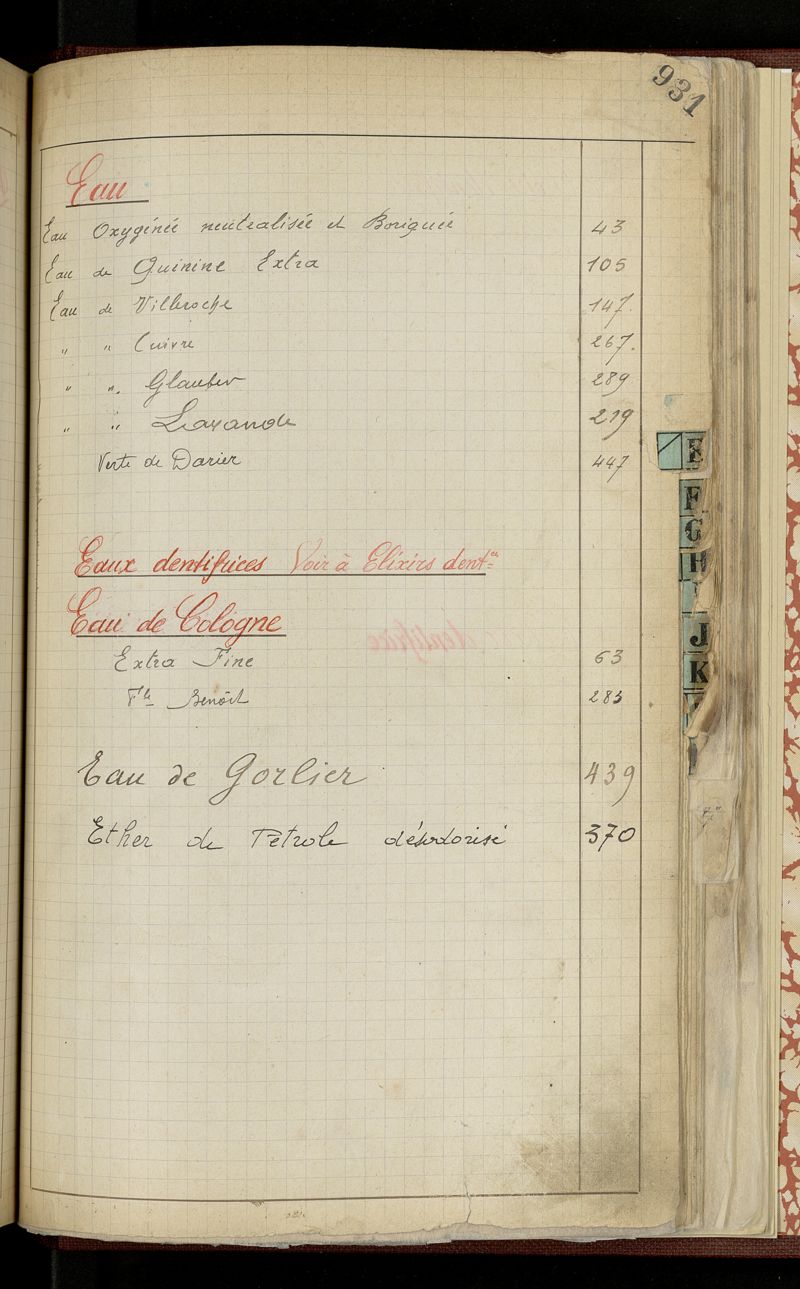 931
Eau
Eau Oxygénée neutralisée et Boriquée 43
Eau de Quinine Extra 105
Eau de Villeroche 147.
" " Cuivre 267.
" " Glauber 289
" " Lavande 219
Verte de Darier 447
Eaux dentifrices Voir à Elixirs dent.es
Eau de Cologne
Extra Fine 63
Fle Benoît 283
Eau de Gorlier 439
Ether de Pétrole désodorisé 370
E
F
G
H
J
K